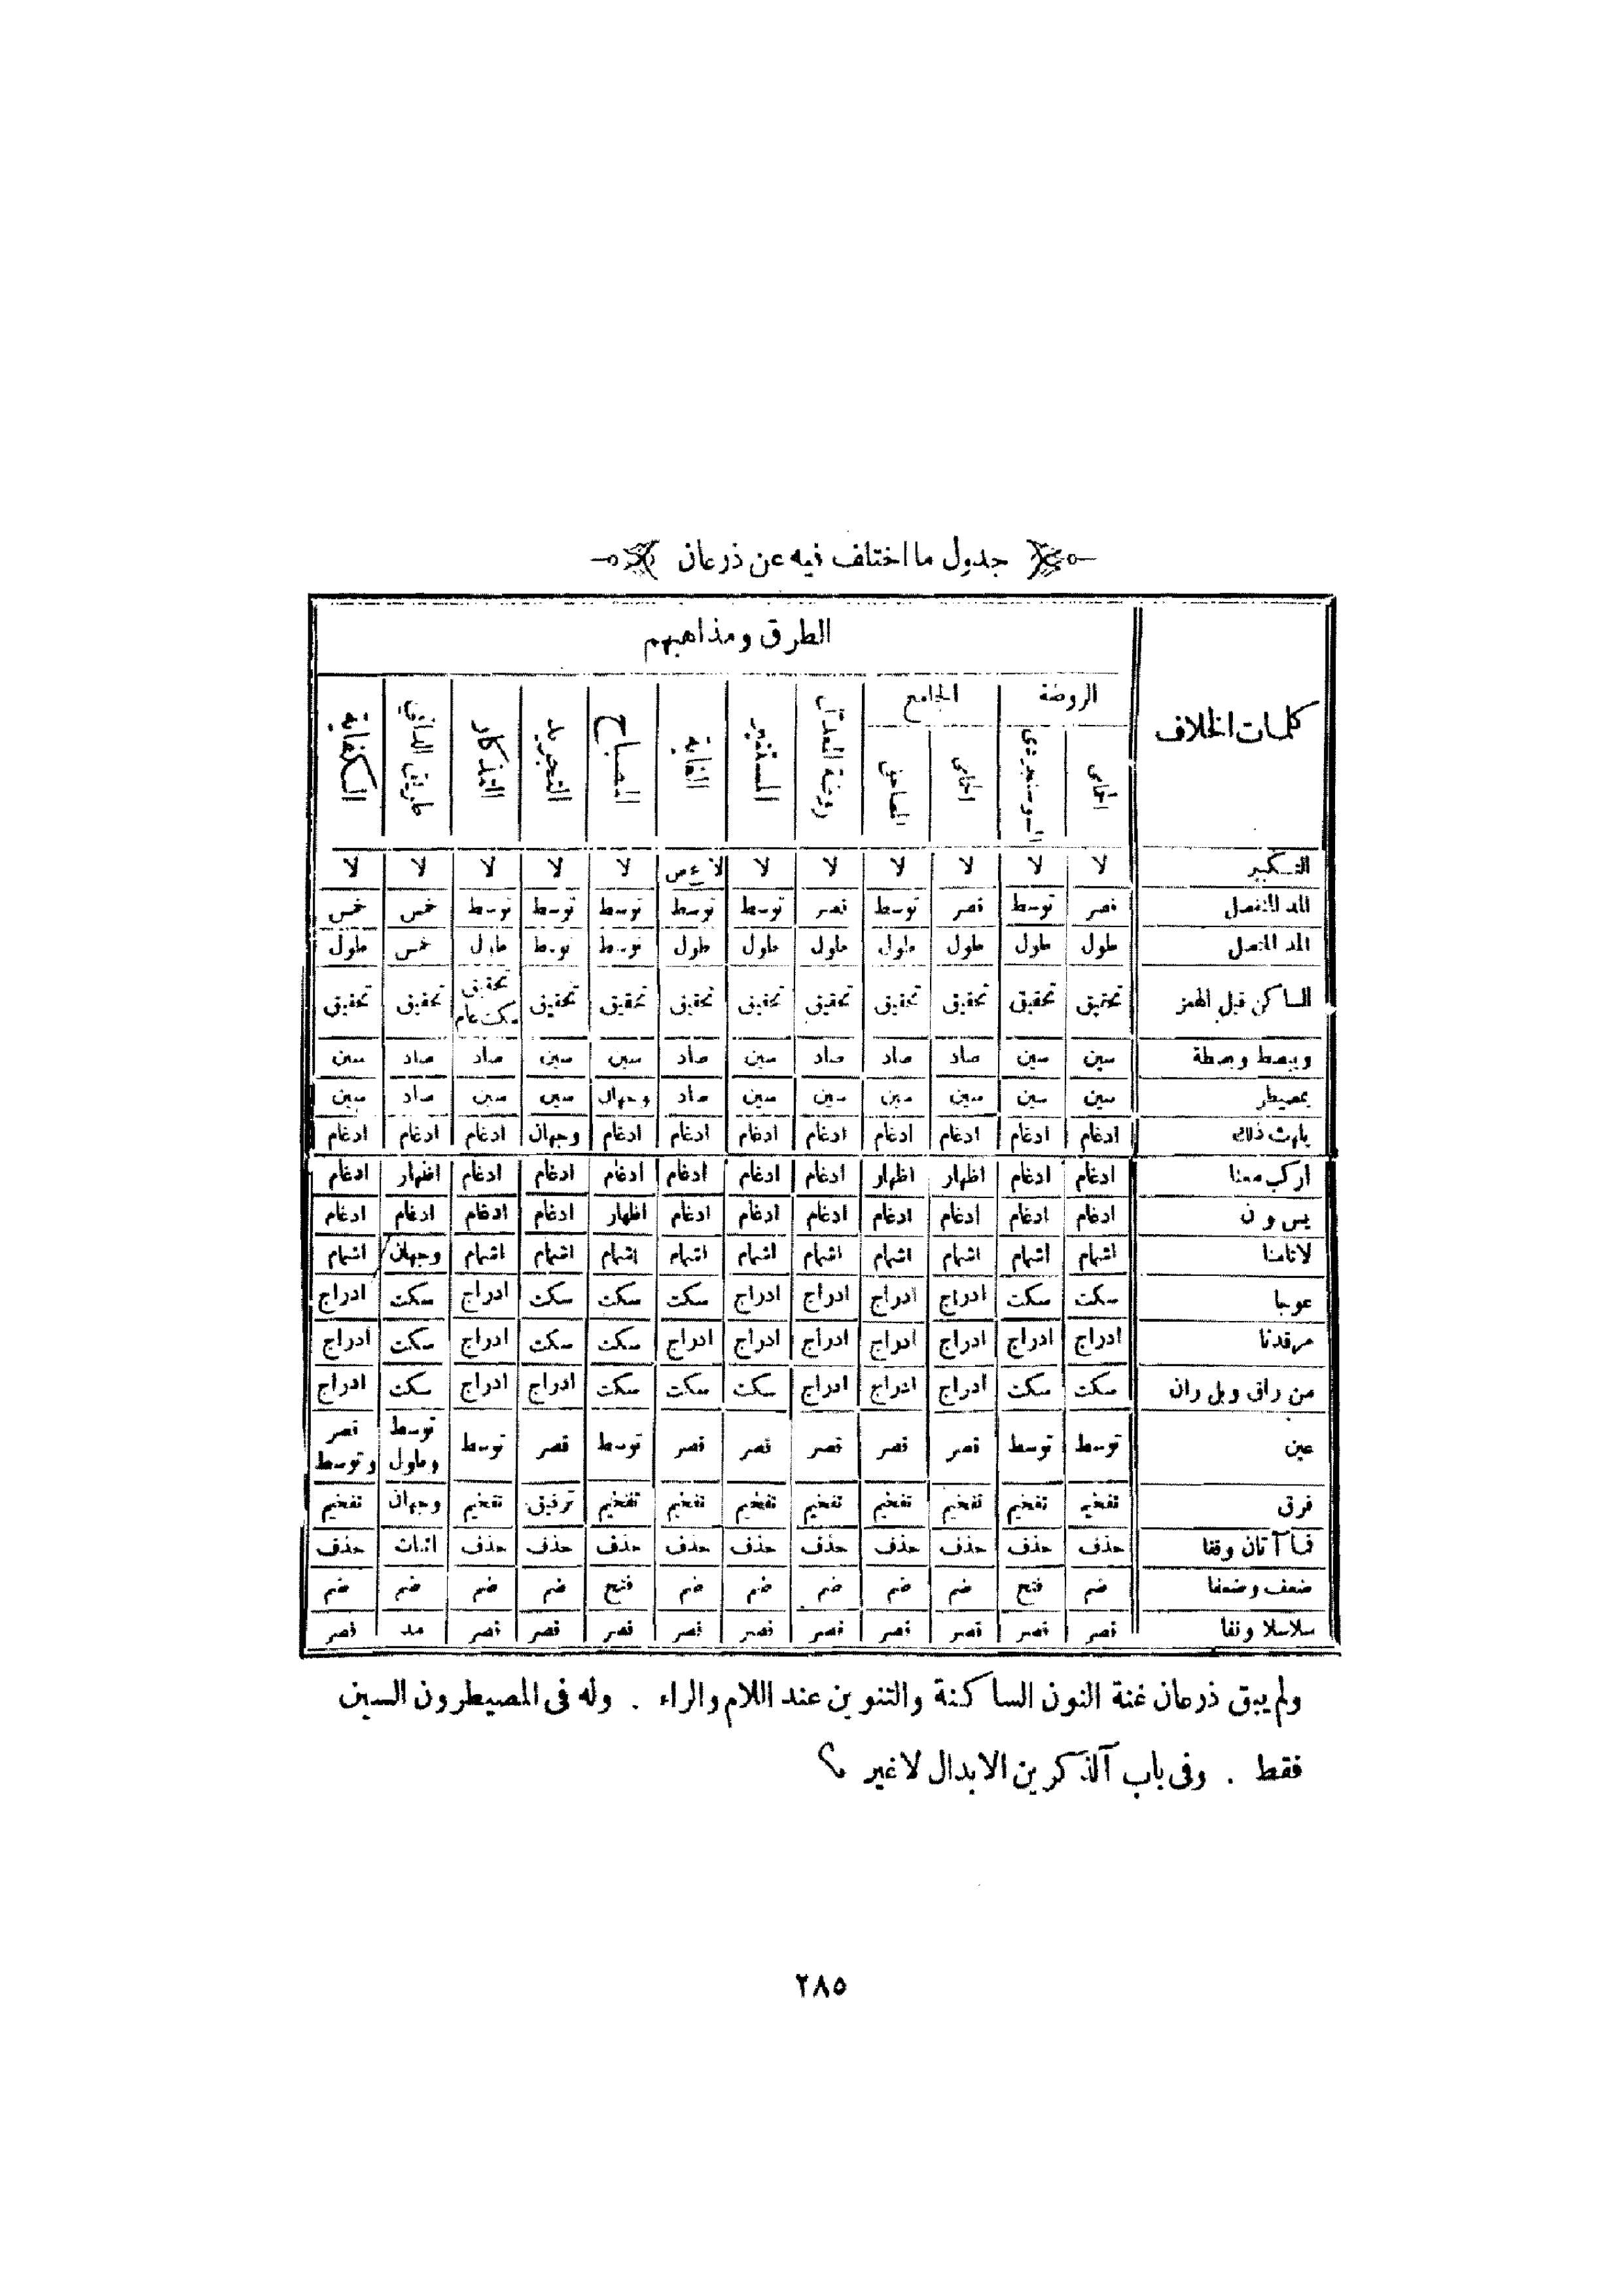 جدول ما اختلف فيه عن ذرعان
كلمات الخلاف الطرق ومذاهبهم
الروضة الجامع روضة المعدّل المستنير الغاية المصباح التجريد التذكار طريق الداني الكفاية
الحمامي السوسنجردي الحمامي المصاحفي
التكبير لا لا لا لا لا لا لا ص لا لا لا لا لا
المد المنفصل قصر توسط قصر توسط قصر توسط توسط توسط توسط توسط خمس خمس
المد المتصل طول طول طول طول طول طول طول توسط توسط طول خمس طول
الساكن قبل الهمز تحقيق تحقيق تحقيق تحقيق تحقيق تحقيق تحقيق تحقيق تحقيق تحقيق سكت عام تحقيق تحقيق
ويبصط وبصطة سين سين صاد صاد صاد سين صاد سين سين صاد صاد سين
بمصيطر سين سين سين سين سين سين صاد وجهان سين سين صاد سين
يلهث ذلك ادغام ادغام ادغام ادغام ادغام ادغام ادغام ادغام وجهان ادغام ادغام ادغام
اركب معنا ادغام ادغام اظهار اظهار ادغام ادغام ادغام ادغام ادغام ادغام اظهار ادغام
يس و ن ادغام ادغام ادغام ادغام ادغام ادغام ادغام اظهار ادغام ادغام ادغام ادغام
لاتامنا اشمام اشمام اشمام اشمام اشمام اشمام اشمام اشمام اشمام اشمام وجهان اشمام
عوجا سكت سكت ادراج ادراج ادراج ادراج سكت سكت سكت ادراج سكت ادراج
مرقدنا ادراج ادراج ادراج ادراج ادراج ادراج ادراج سكت سكت ادراج سكت ادراج
من راق وبل ران سكت سكت ادراج ادراج ادراج سكت سكت سكت ادراج ادراج سكت ادراج
عين توسط توسط قصر قصر قصر قصر قصر توسط قصر توسط توسط وطول قصر وتوسط
فرق تفخيم تفخيم تفخيم تفخيم تفخيم تفخيم تفخيم تفخيم ترقيق تفخيم وجهان تفخيم
فما آتان وقفا حذف حذف حذف حذف حذف حذف حذف حذف حذف حذف اثبات حذف
ضعف وضعفا ضم فتح ضم ضم ضم ضم ضم فتح ضم ضم ضم ضم
سلاسلا وقفا قصر قصر قصر قصر قصر قصر قصر قصر قصر قصر مد قصر
ولم يبق ذرعان غنة النون الساكنة والتنوين عند اللام والراء . وله فى المصيطرون السين
فقط . وفى باب آلذكرين الابدال لاغير
٢٨٥